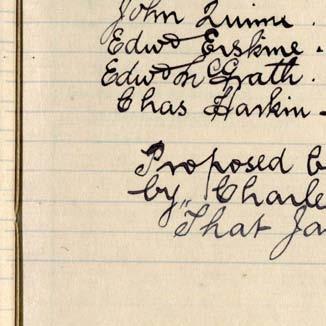 John Quinn.
Edwd Erskine.
Edwd McGrath.
Chas Harkin
Proposed b
by,, Charle
That Ja